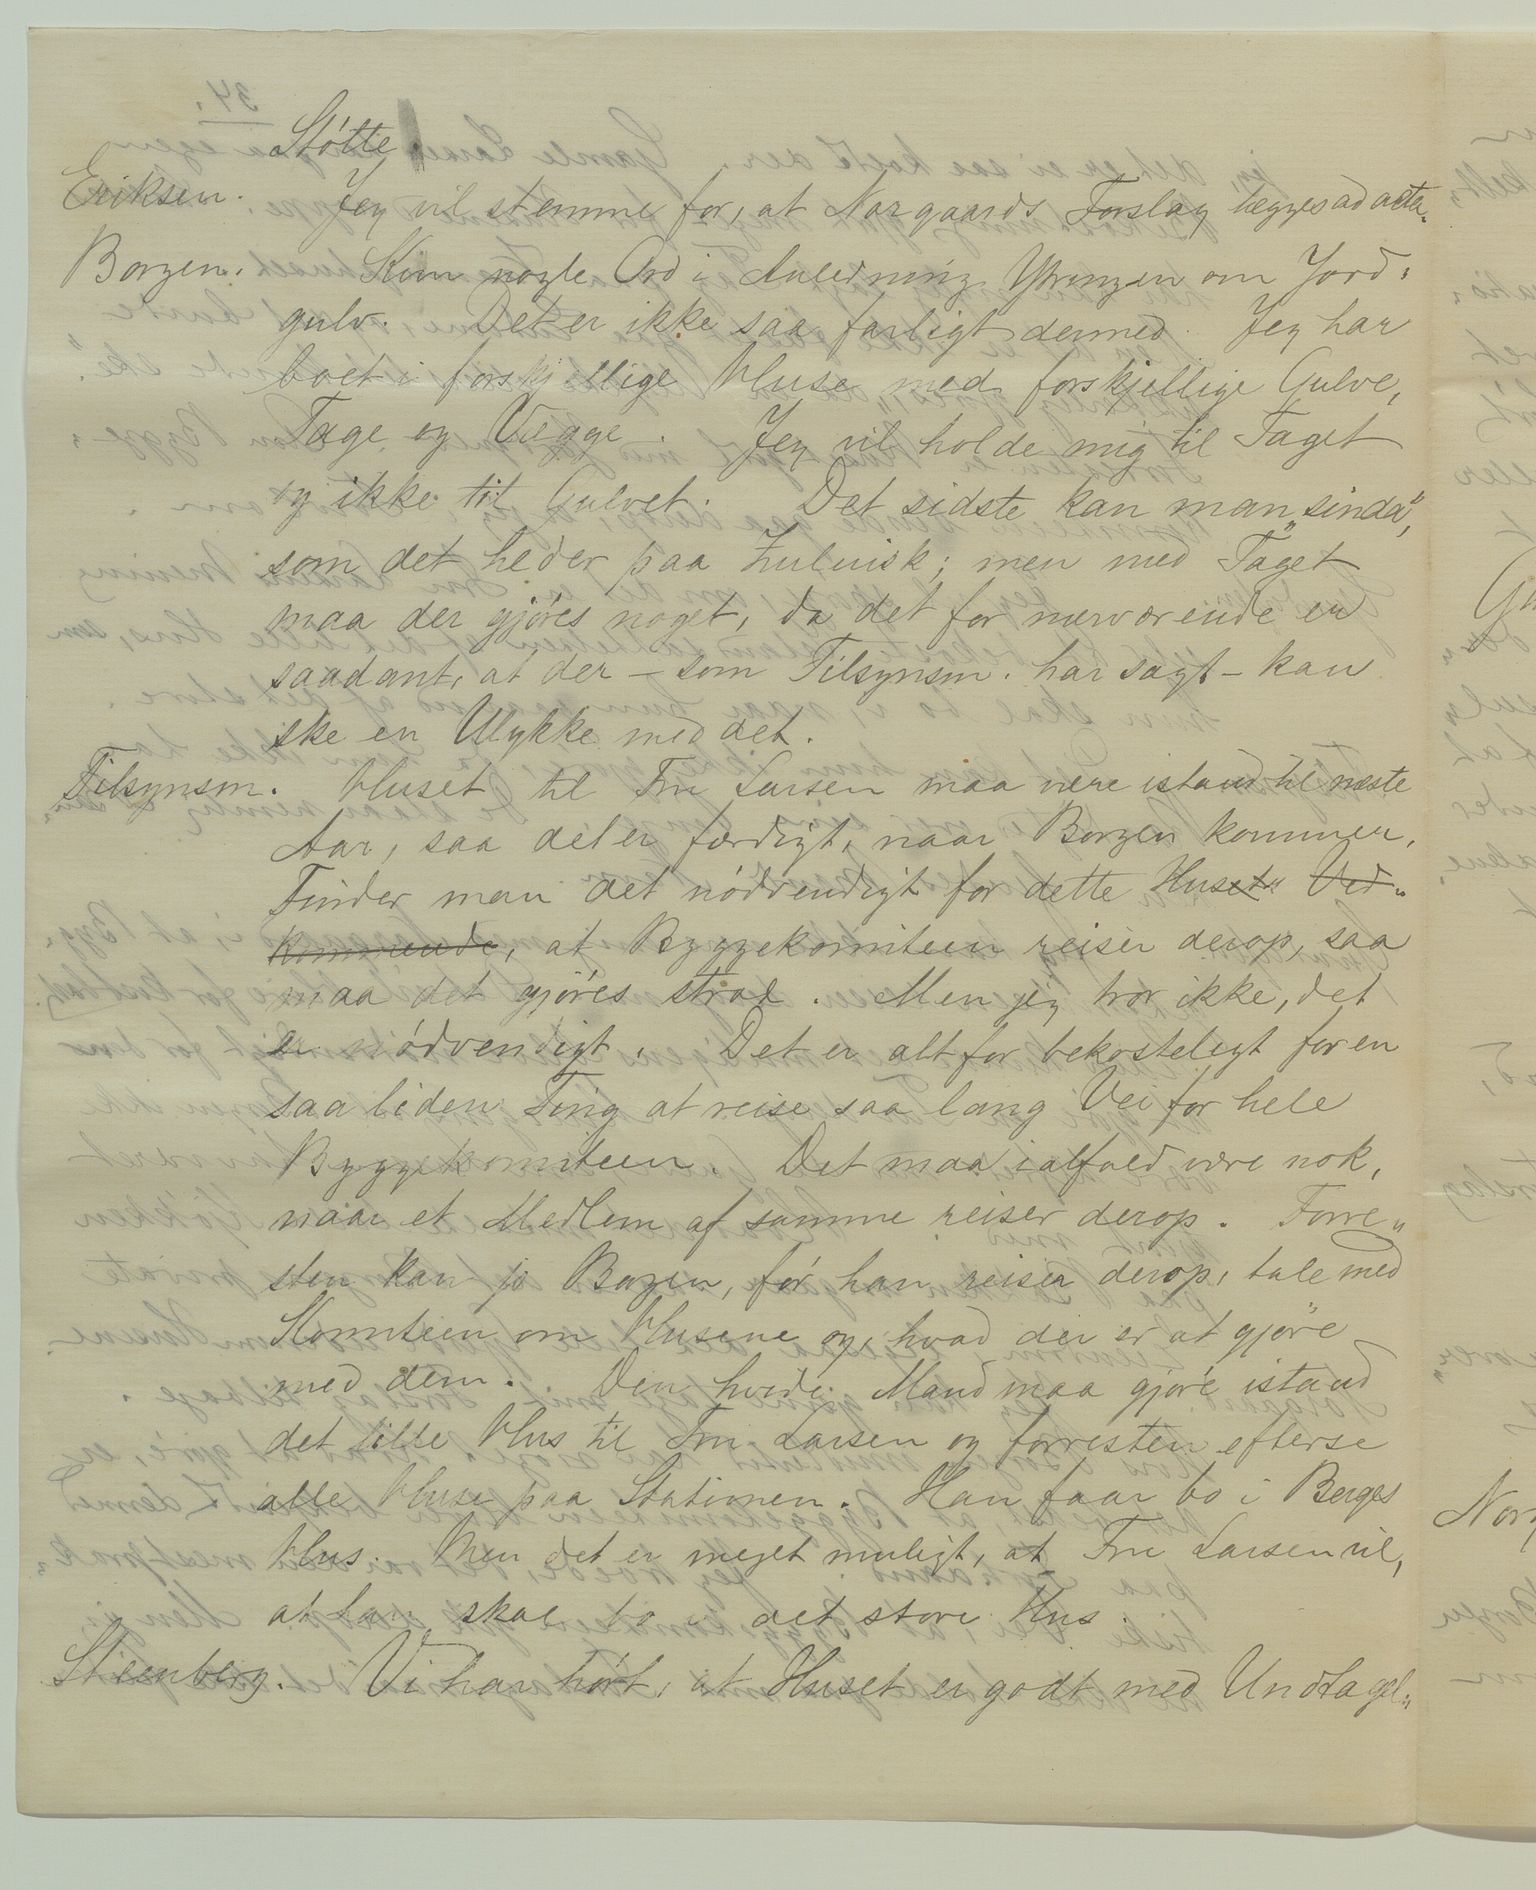 Støtte.
Eriksen. Jeg vil stemme for, at Norgaards Forslag lægges ad acta.
Borgen. Kun nogle Ord i Anledning Ytringen om Jord-
gulv. Det er ikke saa farligt dermed. Jeg har
boet i forskjellige Huse med forskjellige Gulve,
Tage og Vægge. Jeg vil holde mig til Taget
og ikke til Gulvet. Det sidste kan man "sinda",
som det heder paa Zuluisk; men med Taget
maa der gjøres noget, da det for nærværende er
saadant, at der – som Tilsynsm. har sagt – kan
ske en Ulykke med det.
Tilsynsm. Huset til Fru Larsen maa være istand til næste
Aar, saa det er færdigt, naar Borgen kommer.
Finder man det nødvendigt for dette Husets Ved-
kommende, at Byggekomiteen reiser derop, saa
maa det gjøres strax. Men jeg tror ikke, det
er nødvendigt. Det er alt for bekosteligt for en
saa liden Ting at reise saa lang Vei for hele
Byggekomiteen. Det maa ialfald være nok,
naar et Medlem af samme reiser derop. Forre-
sten kan jo Borgen, før han reiser derop, tale med
Komiteen om Husene og, hvad der er at gjøre
med dem. Den hvide Mand maa gjøre istand
det lille Hus til Fru Larsen og forresten efterse
alle Huse paa Stationen. Han faar bo i Berges
Hus. Men det er meget muligt, at Fru Larsen vil,
at han skal bo i det store Hus.
Steenberg. Vi har hørt, at Huset er godt med Undtagel-